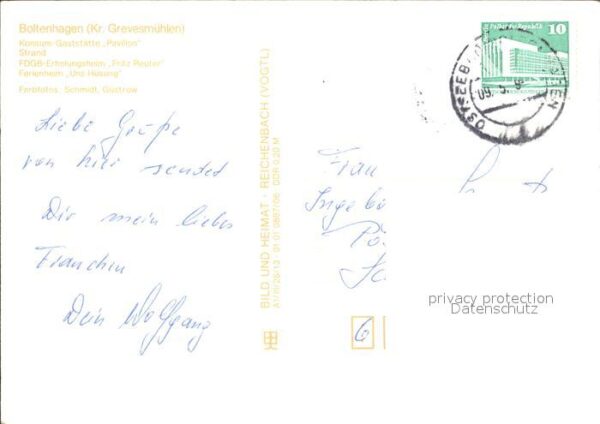 Boltenhagen (Kr. Grevesmühlen)
Konsum-Gaststätte „Pavillon“
Strand
FDGB-Erholungsheim „Fritz Reuter“
Ferienheim „Uns Hüsung“
Farbfotos: Schmidt, Güstrow
Liebe Grüße
von hier sendet
Dir mein liebes
Frauchen
Dein Wolfgang
BILD UND HEIMAT · REICHENBACH (VOGTL)
10
OSTSEEBAD
09. 5.
Frau
Inge
6
privacy protection
Datenschutz